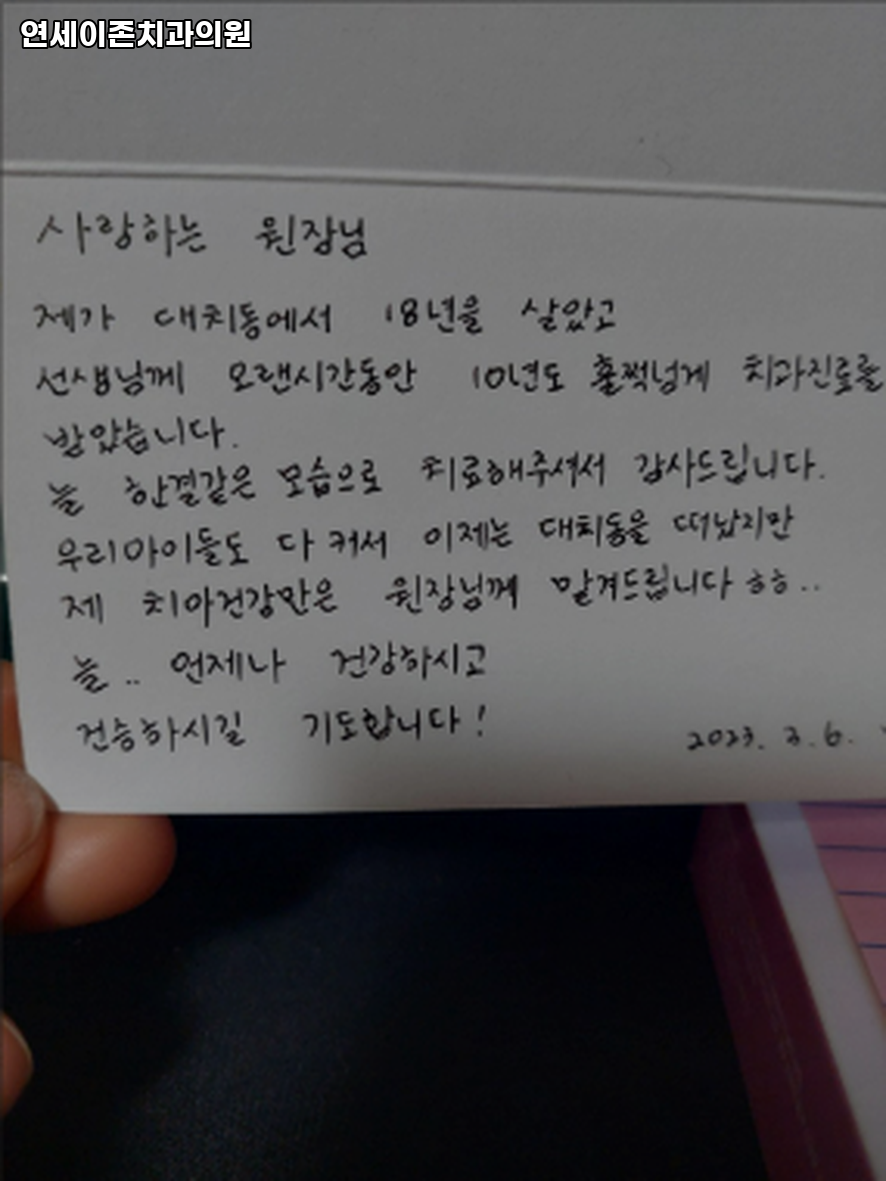 연세이존치과의원
사랑하는 원장님
제가 대치동에서 18년을 살았고
선생님께 오랜시간동안 10년도 훌쩍넘게 치과진료를
받았습니다.
늘 한결같은 모습으로 치료해주셔서 감사드립니다.
우리아이들도 다 커서 이제는 대치동을 떠났지만
제 치아건강만은 원장님께 맡겨드립니다 ㅎㅎ..
늘.. 언제나 건강하시고
건승하시길 기도합니다!
2023. 3. 6.